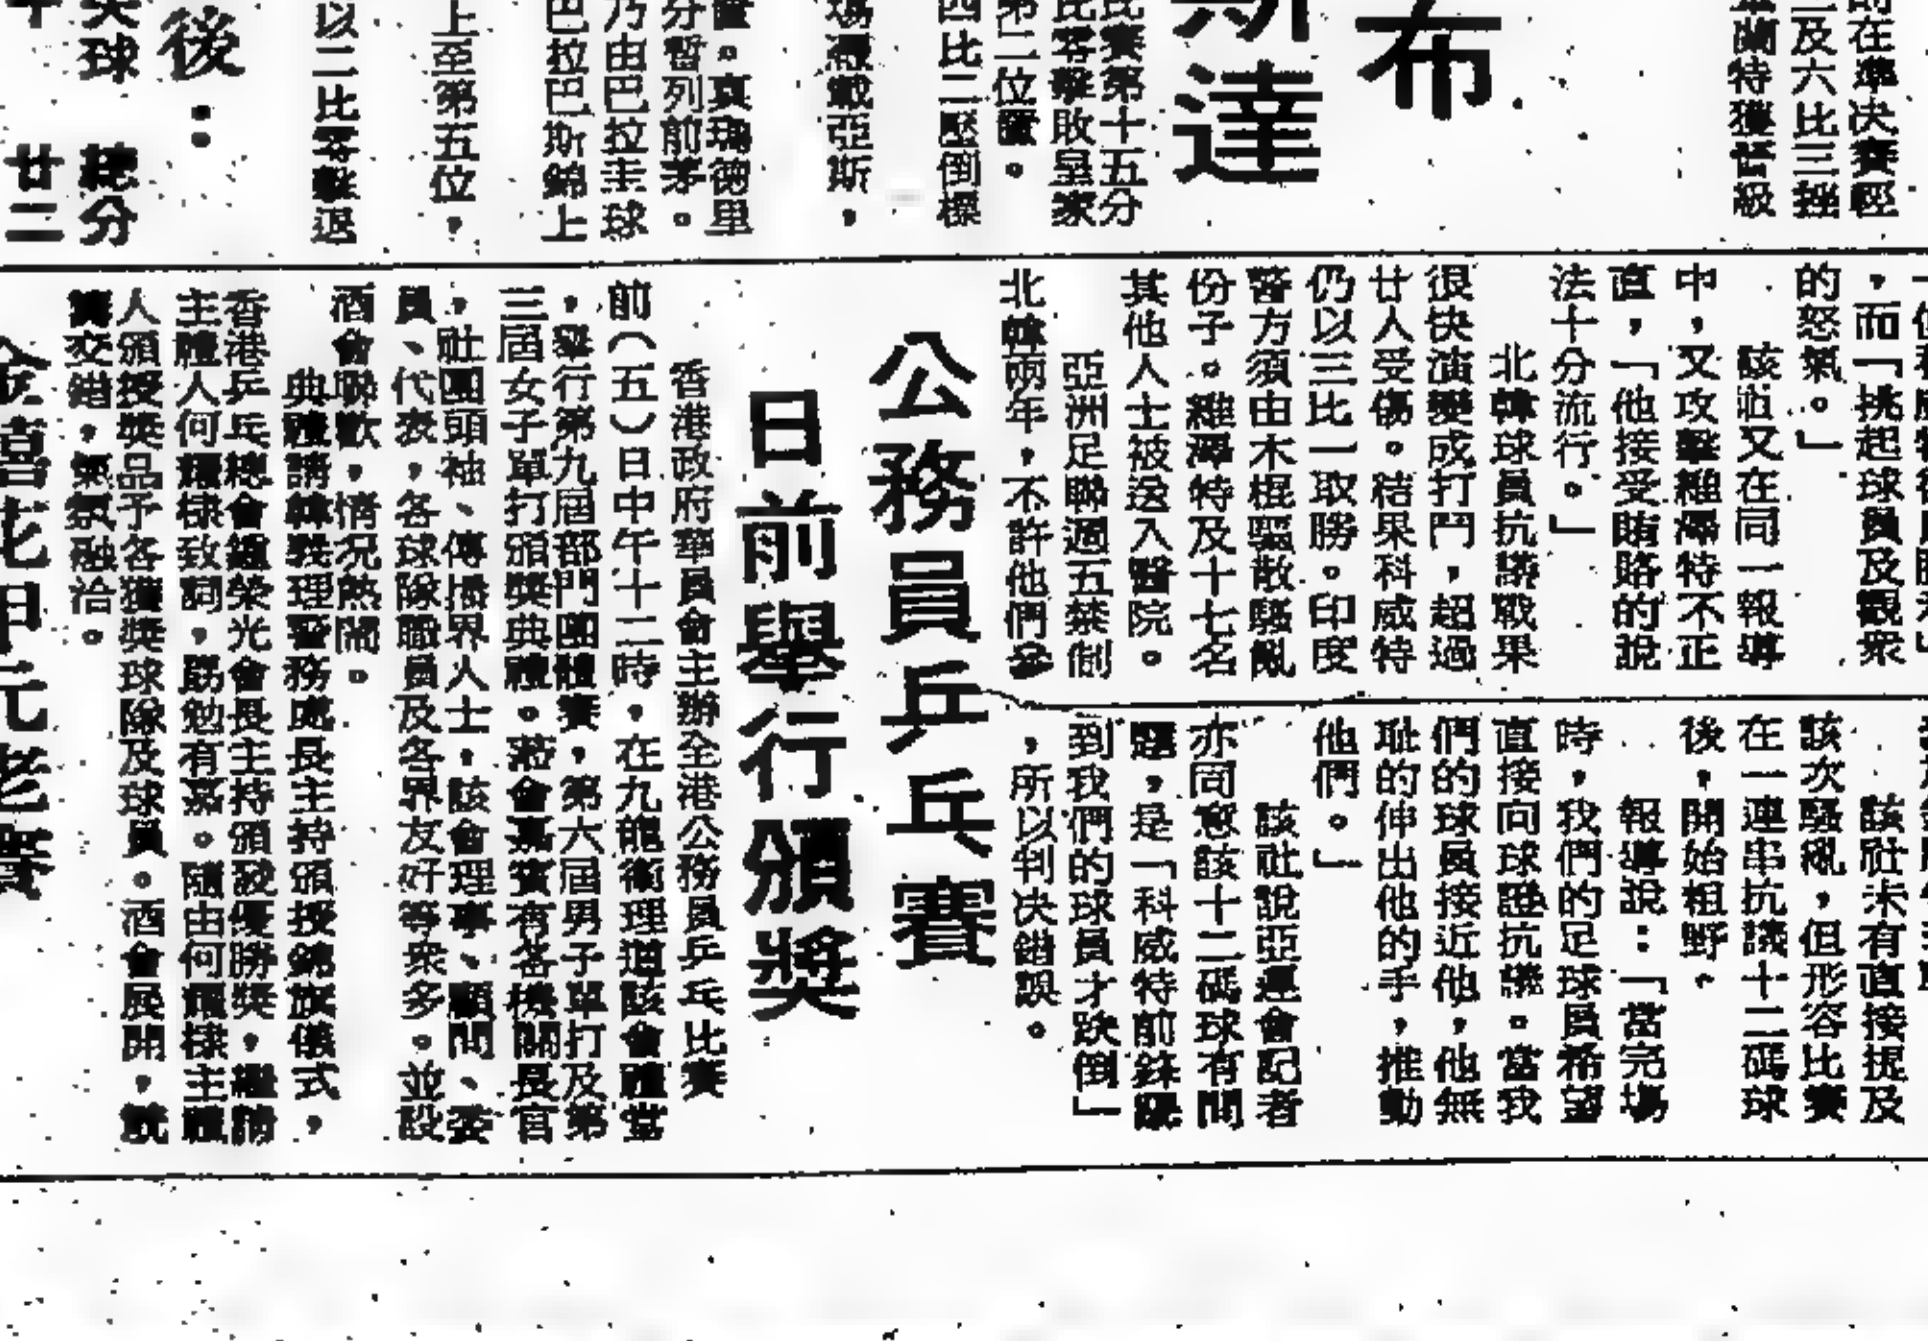 的在準決賽輕
二及六比三挫
蘭特獲晉級
布
斯達
比賽第十五分
比零擊敗皇家
第二位置。
四比二壓倒標
場憑戰亞斯，
置。真瑪德里
分暫列前茅。
乃由巴拉圭球
巴拉巴斯錦上
上至第五位，
以二比零擊退
後：
失球 總分
廿二
，而「挑起球員及觀衆
的怒氣。」
該社又在同一報導
中，又攻擊維澤特不正
直，「他接受賄賂的說
法十分流行。」
北韓球員抗議戰果
很快演變成打鬥，超過
廿人受傷。結果科威特
仍以三比一取勝。印度
警方須由木棍驅散騷亂
份子。維澤特及十七名
其他人士被送入醫院。
亞洲足聯週五禁制
北韓兩年，不許他們參
該社未有直接提及
該次騷亂，但形容比賽
在一連串抗議十二碼球
後，開始粗野。
報導說：「當完場
時，我們的足球員希望
直接向球證抗議。當我
們的球員接近他，他無
耻的伸出他的手，推動
他們。」
該社說亞運會記者
亦同意該十二碼球有問
題，是「科威特前鋒踢
到我們的球員才跌倒」
，所以判决錯誤。
公務員乒乓賽
日前舉行頒獎
香港政府華員會主辦全港公務員乒乓比賽
前（五）日中午十二時，在九龍衛理道該會禮堂
，舉行第九屆部門團體賽，第六屆男子單打及第
三屆女子單打頒獎典禮。蒞會嘉賓有各機關長官
，社團頭袖、傳播界人士，該會理事、顧問、委
員、代表，各球隊職員及各界友好等衆多。並設
酒會聯歡，情况熱鬧。
典禮請韓義理警務處長主持頒授錦旗儀式，
香港乒乓總會盧榮光會長主持頒發優勝獎，繼請
主禮人何耀棣致詞，勗勉有嘉。隨由何耀棣主禮
人頒授獎品予各獲獎球隊及球員。酒會展開，觥
籌交錯，氣氛融洽。
金禧花甲元老賽